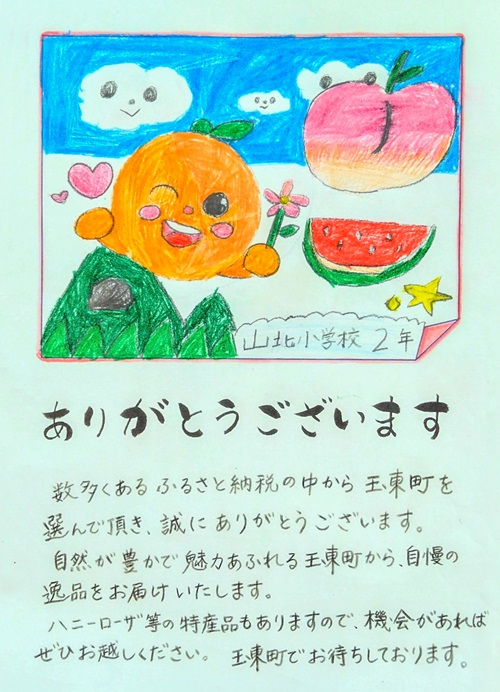 山北小学校 2年
ありがとうございます
数多くあるふるさと納税の中から玉東町を
選んで頂き、誠にありがとうございます。
自然が豊かで魅力あふれる玉東町から、自慢の
逸品をお届けいたします。
ハニーローザ等の特産品もありますので、機会があれば
ぜひお越しください。 玉東町でお待ちしております。